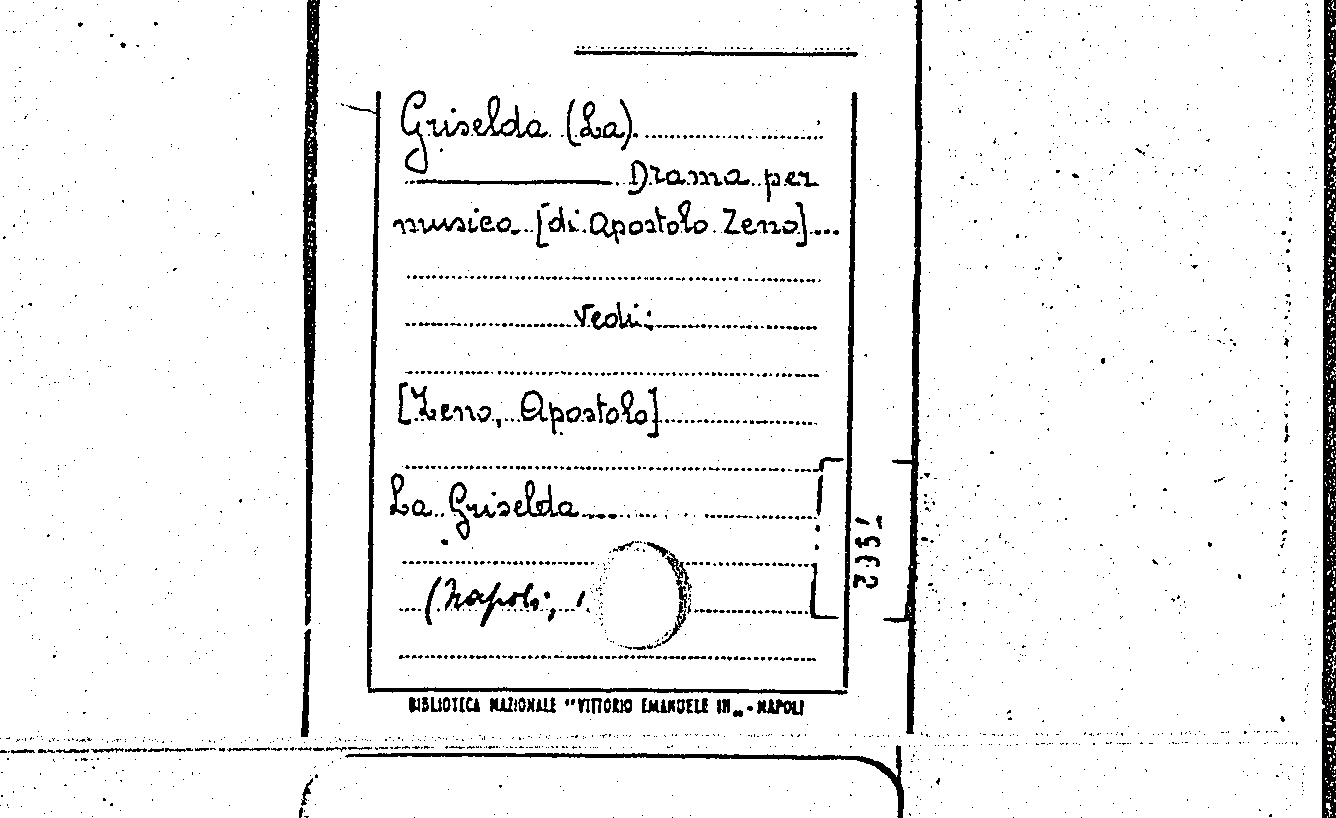 Griselda (La)
Drama per
musica [di Apostolo Zeno]...
Vedi:
[Zeno, Apostolo]
La Griselda....
(Napoli,
BIBLIOTECA NAZIONALE "VITTORIO EMANUELE III„ - NAPOLI